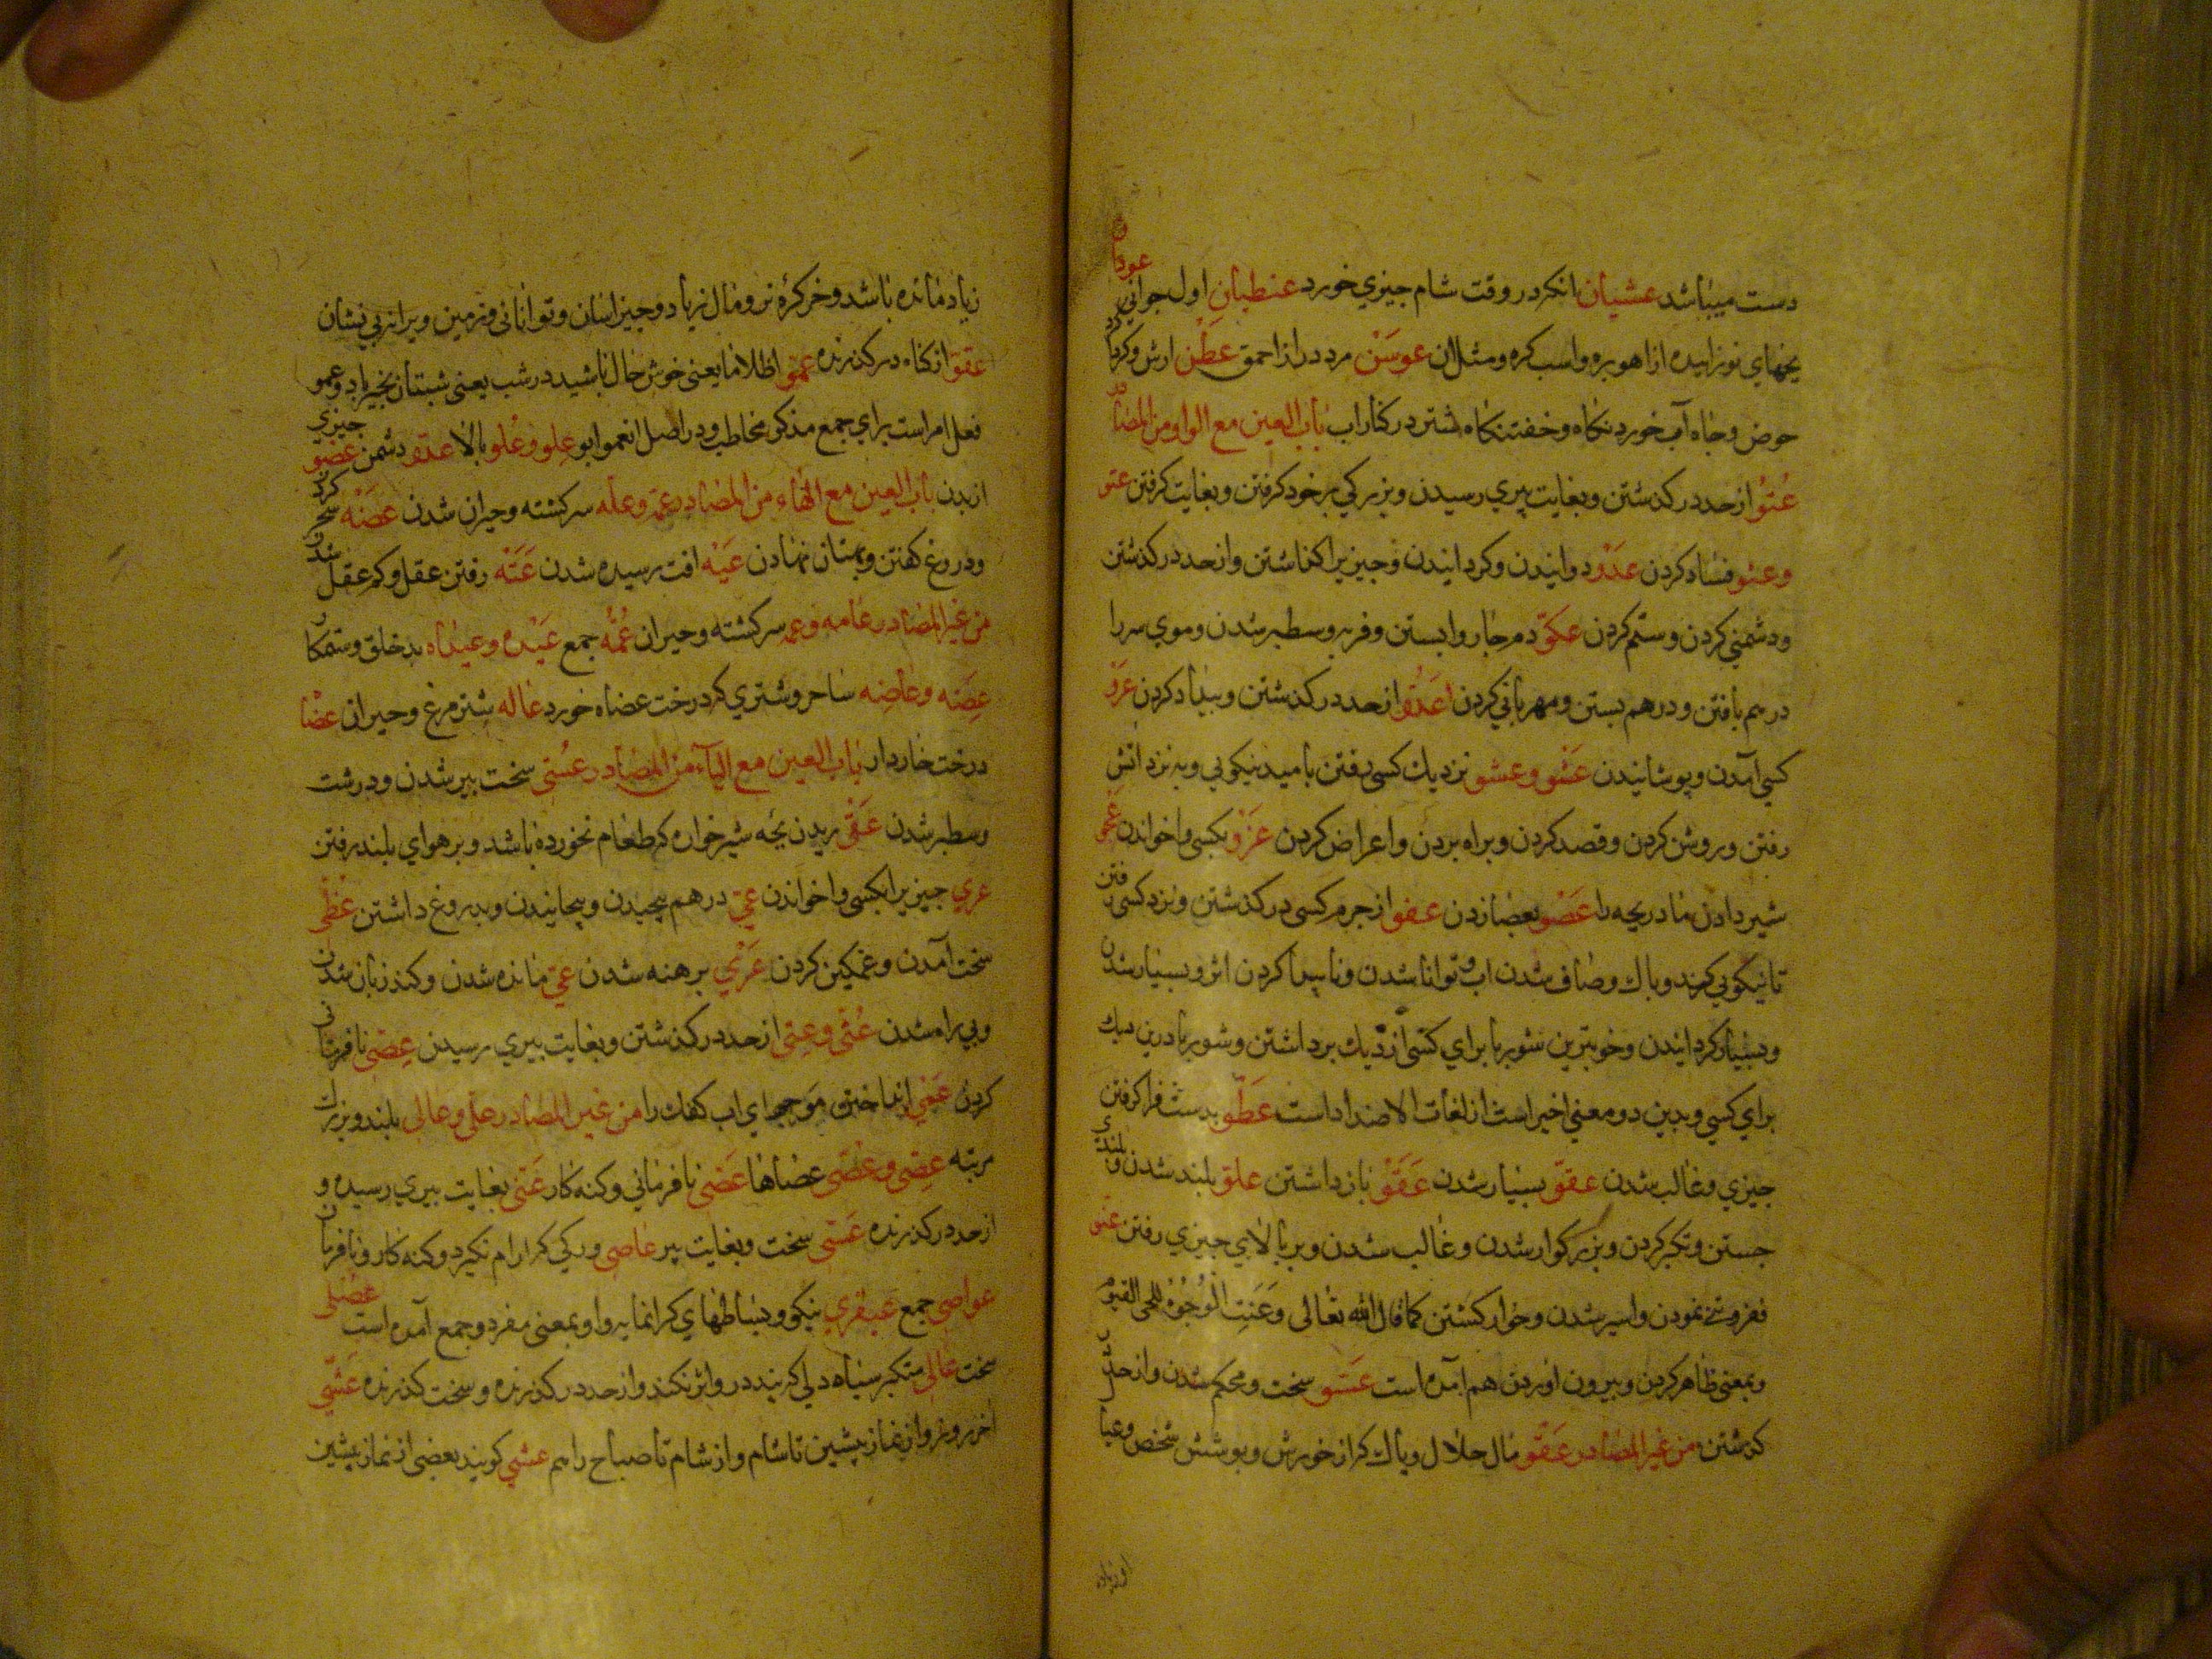 دست میباشد عشیان انکه در وقت شام چیزي خورد عنطیان اول جواني عودان
بچهاي نوزاییده از اهو بره و اسب کره و مثل ان عوسن مرد دراز احمق عطن ارش و کرد
حوض و جاه آب خورد نکاه و خفتنکاه شتر در کنار اب باب العین مع الواو من المصا
عتو از حد در کذشتن و بغایت پیري رسیدن و بزرکي بر خود کرفتن و بغایت کرفتن عثو
و عثو فساد کردن عدو دوانیدن و کردانیدن و چیزیرا کماشتن و از حد در کذشتن
و دشمني کردن و ستم کردن عکو دم چاروا بستن و فربه و سطبر شدن و موي سر را
درهم بافتن و درهم بستن و مهرباني کردن اعدو از حد در کذشتن و بیداد کردن عرو
کسي آمدن و پوشانیدن عشو و عشو نزدیك کسی رفتن بامید نیکویي و به نزد اتش
رفتن و روشن کردن و قصد کردن و براه بردن و اعراض کردن عزو بکسی واخواندن عجو
شیر دادن مادر بچه را عصو بعصا زدن عفو از جرم کسی در کذشتن و نزد کسی رفتن
تا نیکویي کند و پاك و صاف شدن اب و توانا شدن و ناپیدا کردن اثر و بسیار شدن
و بسیار کردانیدن و خوبترین شوربا براي کسی از دیك برداشتن و شوربا درین دیك
براي کسي و بدین دو معني اخیر است از لغات الاضداد است عطو بدست فرا کرفتن
چیزي و غالب شدن عقو بسیار شدن عقو باز داشتن علو بلند شدن و بلندي
جستن و تکبر کردن و بزرکوار شدن و غالب شدن و بر بالایي چیزي رفتن عنو
فروتني نمودن و اسیر شدن و خوار کشتن کما قال الله تعالی وعنت الوجوه للحی القیوم
و بمعنی ظاهر کردن و بیرون اوردن هم آمده است عسو سخت و محکم شدن و از حد در
کذشتن من غیر المصادر عفو مال حلال و پاك که از خورش و پوشش شخص و عیا
زیاد مانده باشد و خر کره نر و مال زیاد و چیز اسان و توانائی و زمین ویرانه بي نشان
عفو از کناه در کذرنده عمو اظلاما یعنی خوش حال باشید در شب یعنی شبتان بخیر باد و عمو
فعل امر است براي جمع مذکر مخاطب و در اصل انعموا بو علو و علو بالا عدو دشمن عضو چیزي
از بدن باب العین مع الهاء من المصادر عمه و عله سرکشته و حیران شدن عضه سحر کردن
و دروغ کفتن و بهتان نهادن عیه افت رسیده شدن عته رفتن عقل و کم عقل شدن
من غیر المصادر عامه و عمه سرکشته و حیران عمه جمع عیده و عیداه بد خلق و ستمکار
عضه و عاضه ساحر و شتري که درخت عضاه خورد عاله شتر مرغ و حیران عضا
درخت خاردار باب العین مع الیاء من المصادر عسی سخت پیر شدن و درشت
و سطبر شدن عقي ریدن بچه شیر خواره که طعام نخورده باشد و بر هواي بلند رفتن
عزي چیزیرا بکسی واخواندن عي درهم پیچیدن و پیچانیدن و بدروغ داشتن عظي
سخت آمدن و غمکین کردن عري برهنه شدن عي مانده شدن و کند زبان شدن
و بي راه شدن عتی و عتی از حد در کذشتن و بغایت پیري رسیدن عصی نافرماني
کردن عمي انداختن موجهاي اب کفك را من غیر المصادر علی و عالی بلند و بزرك
مرتبه عصی و عصی عصاها عصی نافرماني و کنه کار عتی بغایت پیري رسیده و
از حد در کذرنده عسی سخت و بغایت پیر عاصی و رکی که ارام نکیرد و کنه کار و نافرمان
عواصی جمع عبقري نیکو و بساطهاي کرانمایه و او بمعنی مفرد و جمع آمده است عضلی
سخت عالی متکبر سیاه دلی که پند در او اثر نکند و از حد در کذرنده و سخت کذرنده عشي
اخر روز و از نماز پیشین تا شام و از شام تا صباح را هم عشي کویند بعضی از نماز پیشین